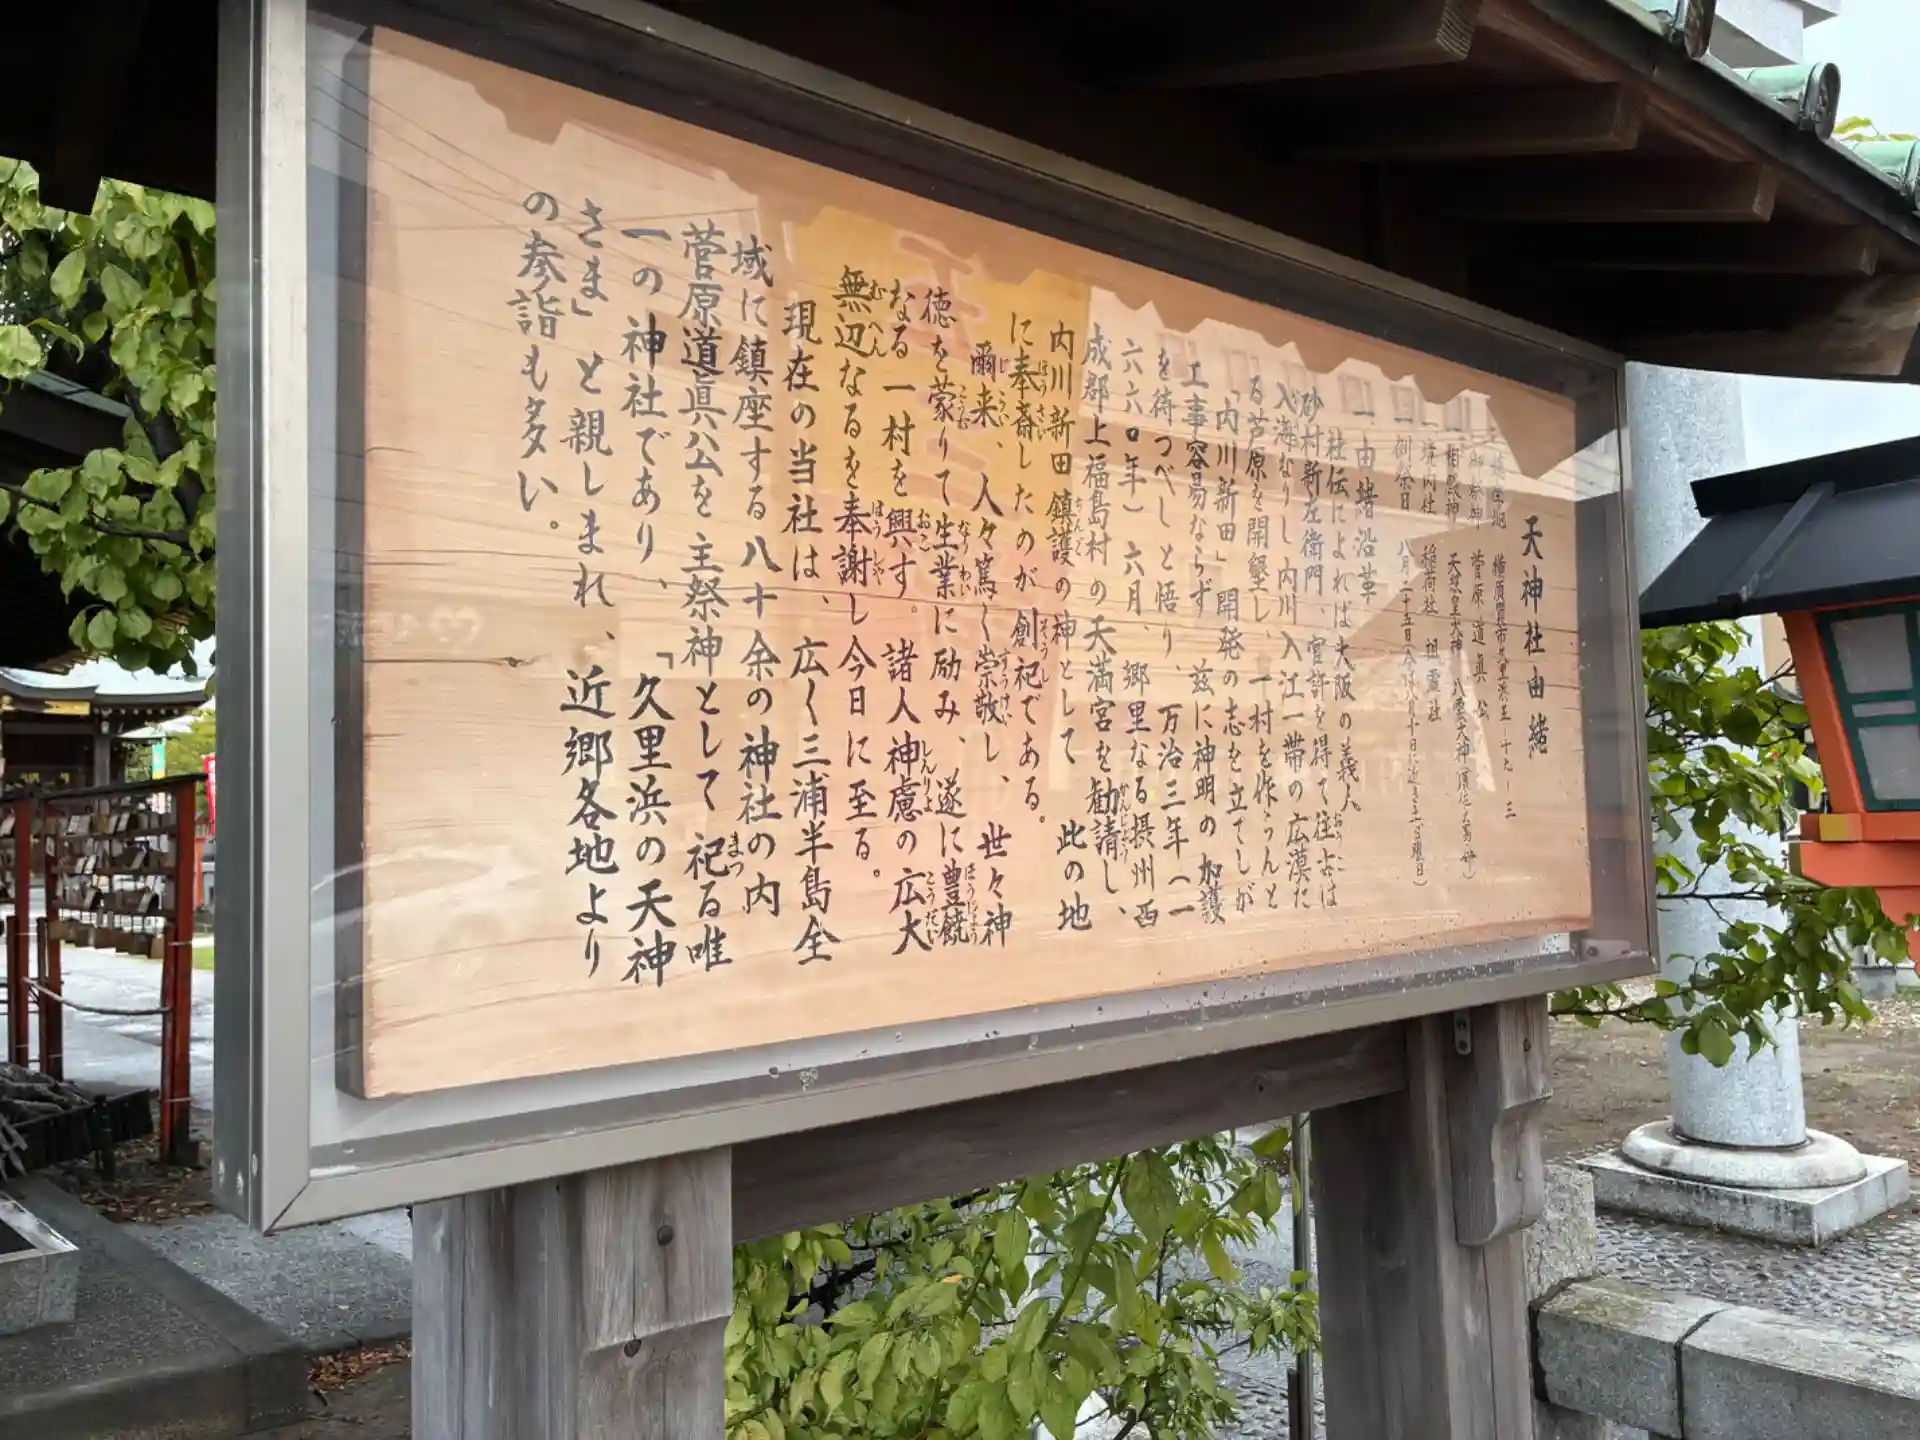 天神社由緒
一、鎮座地 横須賀市久里浜五ー十九ー三
一、御祭神 菅原道眞公
一、相殿神 天照皇大神 八雲大神
一、境内社 稲荷社 祖霊社
一、例祭日 八月二十五日(今は八月十日に近き土曜日)
一、由緒沿革
社伝によれば大阪の義人
砂村新左衛門、官許を得て往古は
入海なりし内川入江一帯の広漠た
る芦原を開墾し、一村を作らんと
「内川新田」開発の志を立てしが
工事容易ならず 兹に神明の加護
を待つべしと悟り、万治三年(一
六六〇年)六月、郷里なる摂州西
成郡上福島村の天満宮を勧請し、
内川新田鎮護の神として 此の地
に奉斎したのが創祀である。
爾来、人々篤く崇敬し、世々神
徳を蒙りて生業に励み、遂に豊饒
なる一村を興す。諸人神慮の広大
無辺なるを奉謝し今日に至る。
現在の当社は、広く三浦半島全
域に鎮座する八十余の神社の内
菅原道眞公を主祭神として祀る唯
一の神社であり、「久里浜の天神
さま」と親しまれ、近郷各地より
の参詣も多い。